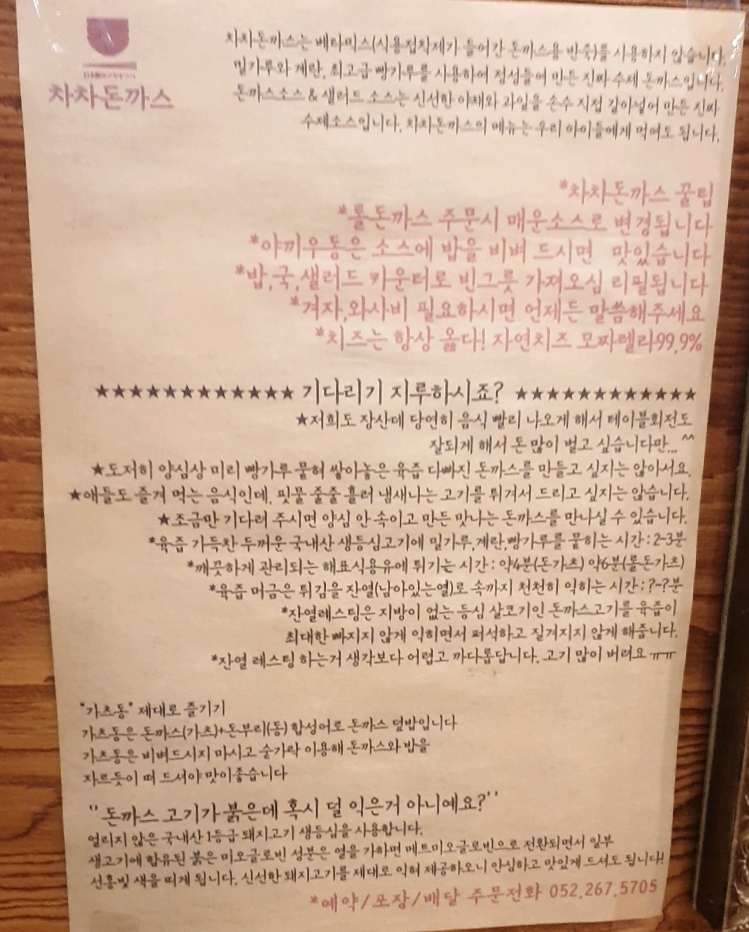 차차돈까스
차차돈까스는 베타믹스(식용접착제가 들어간 돈까스용 반죽)를 사용하지 않습니다.
밀가루와 계란, 최고급 빵가루를 사용하여 정성들여 만든 진짜 수제 돈까스입니다.
돈까스소스 & 샐러드 소스는 신선한 야채와 과일을 손수 직접 갈아넣어 만든 진짜
수제소스입니다. 차차돈까스의 메뉴는 우리 아이들에게 먹여도 됩니다.
*차차돈까스 꿀팁
*롤돈까스 주문시 매운소스로 변경됩니다
*야끼우동은 소스에 밥을 비벼 드시면 맛있습니다
*밥,국,샐러드 카운터로 빈그릇 가져오심 리필됩니다
*겨자,와사비 필요하시면 언제든 말씀해주세요
*치즈는 항상 옳다! 자연치즈 모짜렐라99.9%
★★★★★★★★★★★★ 기다리기 지루하시죠? ★★★★★★★★★★★
★저희도 장산데 당연히 음식 빨리 나오게 해서 테이블회전도
잘되게 해서 돈 많이 벌고 싶습니다만... ^^
★도저히 양심상 미리 빵가루 뭍혀 쌓아놓은 육즙 다빠진 돈까스를 만들고 싶지는 않아서요.
★애들도 즐겨 먹는 음식인데, 핏물 줄줄 흘러 냄새나는 고기를 튀겨서 드리고 싶지는 않습니다.
★조금만 기다려 주시면 양심 안 속이고 만든 맛나는 돈까스를 만나실 수 있습니다.
*육즙 가득찬 두꺼운 국내산 생등심고기에 밀가루,계란,빵가루를 뭍히는 시간 : 2-3분
*깨끗하게 관리되는 해표식용유에 튀기는 시간 : 약4분(돈가츠) 약6분(롤돈가츠)
*육즙 머금은 튀김을 잔열(남아있는열)로 속까지 천천히 익히는 시간 : ?-?분
*잔열레스팅은 지방이 없는 등심 살코기인 돈까스고기를 육즙이
최대한 빠지지 않게 익히면서 퍼석하고 질겨지지 않게 해줍니다.
*잔열 레스팅 하는거 생각보다 어렵고 까다롭답니다. 고기 많이 버려요 ㅠㅠ
"가츠동" 제대로 즐기기
가츠동은 돈까스(가츠)+돈부리(동) 합성어로 돈까스 덮밥입니다
가츠동은 비벼드시지 마시고 숟가락 이용해 돈까스와 밥을
자르듯이 떠 드셔야 맛이좋습니다
"돈까스 고기가 붉은데 혹시 덜 익은거 아니예요?"
얼리지 않은 국내산 1등급 돼지고기 생등심을 사용합니다.
생고기에 함유된 붉은 미오글로빈 성분은 열을 가하면 메트미오글로빈으로 전환되면서 일부
선홍빛 색을 띠게 됩니다. 신선한 돼지고기를 제대로 익혀 제공하오니 안심하고 맛있게 드셔도 됩니다!
*예약/포장/배달 주문전화 052.267.5705